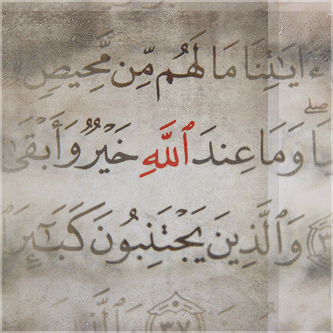 ءَايَٰتِنَا مَا لَهُم مِّن مَّحِيصٍ
وَمَا عِندَ ٱللَّهِ خَيْرٌ وَأَبْقَىٰ
وَٱلَّذِينَ يَجْتَنِبُونَ كَبَٰٓئِرَ
٣٧ وَٱلَّذِينَ